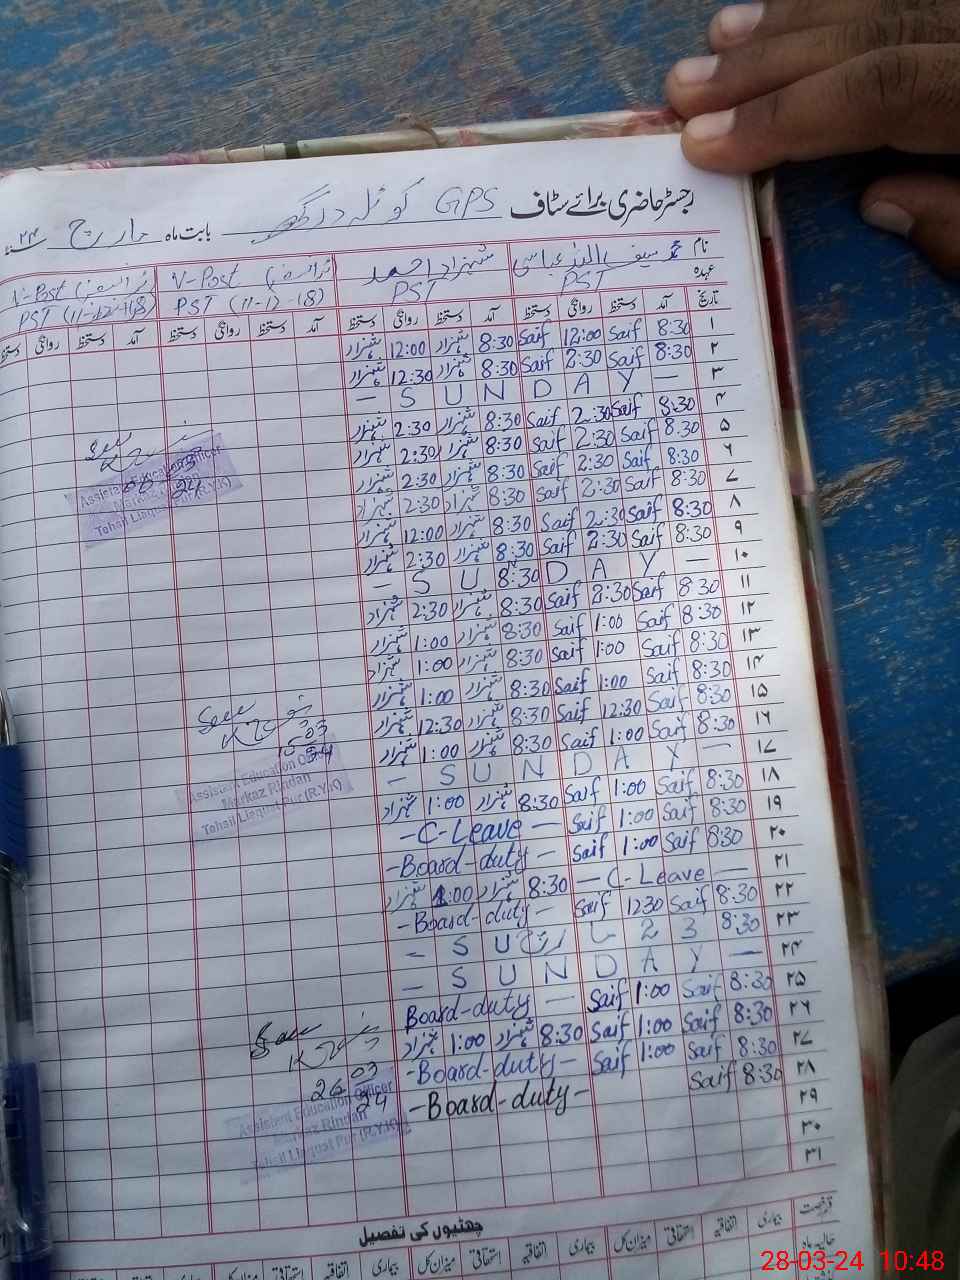 رجسٹر حاضری برائے سٹاف GPS کوٹلہ درکھہ بابت ماہ مارچ سنہ ۲۴
نام محمد سیف اللہ عباسی شہزاد احمد V-Post V-Post
عہدہ PST PST PST (11-12-18) PST (11-12-18)
تاریخ آمد دستخط روانگی دستخط آمد دستخط روانگی دستخط آمد دستخط روانگی دستخط آمد دستخط روانگی دستخط
۱ 8:30 Saif 12:00 Saif 8:30 شہزاد 12:00 شہزاد
۲ 8:30 Saif 2:30 Saif 8:30 شہزاد 12:30 شہزاد
۳ - S U N D A Y -
۴ 8:30 Saif 2:30 Saif 8:30 شہزاد 2:30 شہزاد
۵ 8:30 Saif 2:30 Saif 8:30 شہزاد 2:30 شہزاد
۶ 8:30 Saif 2:30 Saif 8:30 شہزاد 2:30 شہزاد
۷ 8:30 Saif 2:30 Saif 8:30 شہزاد 2:30 شہزاد
۸ 8:30 Saif 2:30 Saif 8:30 شہزاد 12:00 شہزاد
۹ 8:30 Saif 2:30 Saif 8:30 شہزاد 2:30 شہزاد
۱۰ - S U N D A Y -
۱۱ 8:30 Saif 2:30 Saif 8:30 شہزاد 2:30 شہزاد
۱۲ 8:30 Saif 1:00 Saif 8:30 شہزاد 1:00 شہزاد
۱۳ 8:30 Saif 1:00 Saif 8:30 شہزاد 1:00 شہزاد
۱۴ 8:30 Saif 1:00 Saif 8:30 شہزاد 1:00 شہزاد
۱۵ 8:30 Saif 12:30 Saif 8:30 شہزاد 12:30 شہزاد
۱۶ 8:30 Saif 1:00 Saif 8:30 شہزاد 1:00 شہزاد
۱۷ - S U N D A Y -
۱۸ 8:30 Saif 1:00 Saif 8:30 شہزاد 1:00 شہزاد
۱۹ 8:30 Saif 1:00 Saif -C-Leave-
۲۰ 8:30 Saif 1:00 Saif -Board-duty-
۲۱ -C-Leave- 8:30 شہزاد 1:00 شہزاد
۲۲ 8:30 Saif 1230 Saif -Board-duty-
۲۳ 8:30 23 مارچ S U -
۲۴ - S U N D A Y -
۲۵ 8:30 Saif 1:00 Saif Board-duty -
۲۶ 8:30 Saif 1:00 Saif 8:30 شہزاد 1:00 شہزاد
۲۷ 8:30 Saif 1:00 Saif -Board-duty-
۲۸ 8:30 Saif -Board-duty-
۲۹
۳۰
۳۱
Assistant Education Officer
Tehsil Liaquat Pur (R.Y.K)
15 03 24
Assistant Education Officer
Markaz Rindan
Tehsil Liaquat Pur (R.Y.K)
26 03 24
Assistant Education Officer
Markaz Rindan
Tehsil Liaquat Pur (R.Y.K)
چھٹیوں کی تفصیل
قسم رخصت بیماری اتفاقیہ استحقاقی میزان کل بیماری اتفاقیہ استحقاقی میزان کل بیماری اتفاقیہ استحقاقی میزان کل
28-03-24 10:48